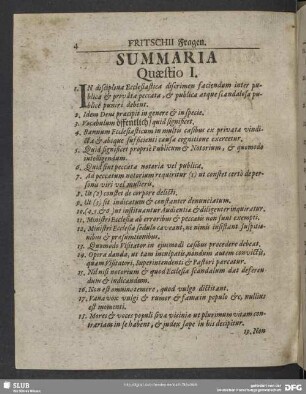 4 FRITSCHII Fragen.
SUMMARIA
Quæstio I.
1. IN disciplina Ecclesiastica discrimen faciendum inter pu-
blica & privata peccata, & publica atque scandalosa pu-
blicè puniri debent.
2. Idem Deus præcipit in genere & in specie.
3. Vocabulum öffentlich/ quid significet.
4. Bannum Ecclesiasticum in multis casibus ex privata vindi-
cta & absque sufficienti causæ cognitione exercetur.
5. Quid significet propriè Publicum & Notorium, & quomodo
intelligendum.
6. Quid sint peccata notoria vel publica.
7. Ad peccatum notorium requiritur (1) ut constet certò de per-
sona viri vel mulieris.
8. Ut (2) constet de corpore delicti.
9. Ut (3) sit indicatum & constanter denunciatum.
10. (4.) & ut instituantur Audientia & diligenter inquiratur.
11. Ministri Ecclesiæ ab erroribus & peccatis non sunt exempti.
12. Ministri Ecclesiæ sedulo caveant, ne nimis insistant suspitio-
nibus & præsumtionibus.
13. Quomodo Visitator in ejusmodi casibus procedere debeat.
14. Opera danda, ut tam inconfessis, nondum autem convictis,
quam Visitatori, Superintendenti & Pastori pareatur.
15. Nil nisi notorium & quod Ecclesiæ scandalum dat deferen-
dum & indicandum.
16. Non est omnino temere, quod vulgo dictitant.
17. Vana vox vulgi & rumor & fama in populo &c. nullius
est momenti.
18. Mores & voces populi seu vicinia ut plurimum vitam con-
trariam in se habent, & judex sæpe in his decipitur.
19. Non
SLUB
DFG